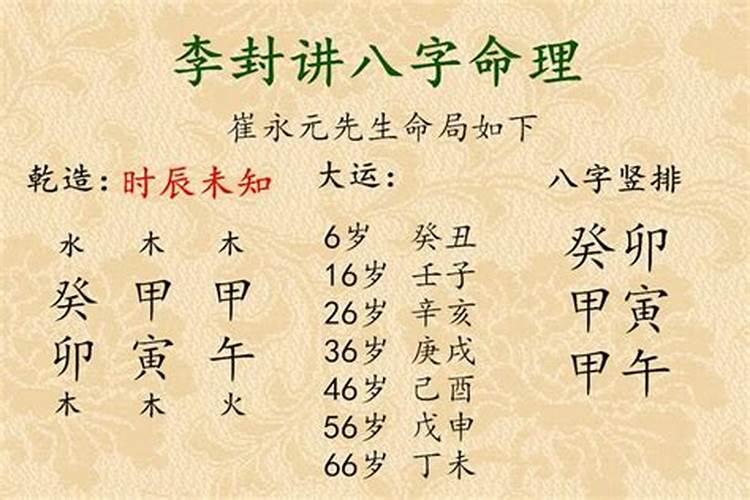 李封讲八字命理
崔永元先生命局如下
乾造：时辰未知
水 木 木
癸 甲 甲
卯 寅 午
木 木 火
大运：
6岁 癸丑
16岁 壬子
26岁 辛亥
36岁 庚戌
46岁 己酉
56岁 戊申
66岁 丁未
八字竖排
癸卯
甲寅
甲午